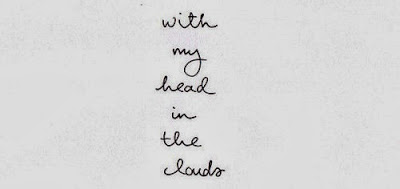 with
my
head
in
the
clouds